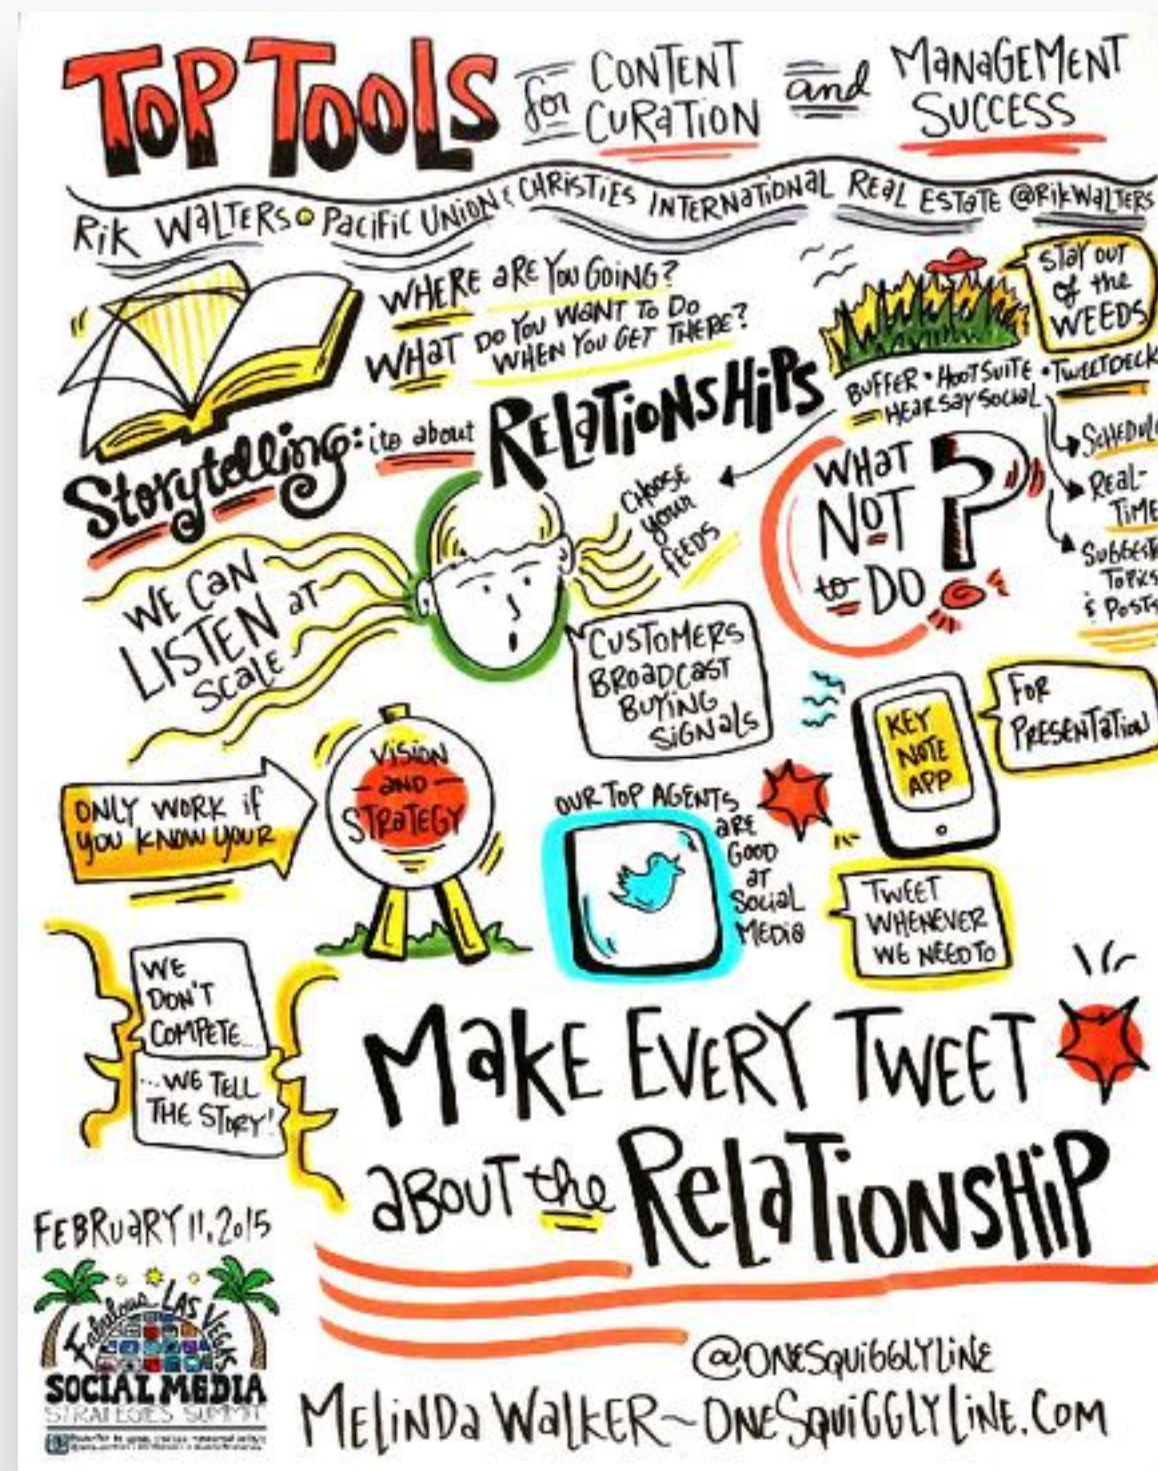 TOP TOOLS for CONTENT CURATION and MANAGEMENT SUCCESS
RIK WALTERS • PACIFIC UNION & CHRISTIES INTERNATIONAL REAL ESTATE @RIKWALTERS
WHERE ARE YOU GOING?
WHAT DO YOU WANT TO DO
WHEN YOU GET THERE?
STAY OUT
of the
WEEDS
BUFFER • HOOTSUITE • TWEETDECK
HEARSAY SOCIAL
Storytelling: its about RELATIONSHIPS
CHOOSE
your
FEEDS
WHAT
NOT
to DO?
REAL-
TIME
TOPICS
& POSTS
WE CAN
LISTEN at
SCALE
CUSTOMERS
BROADCAST
BUYING
SIGNALS
KEY
NOTE
APP
FOR
PRESENTATION
ONLY WORK if
YOU KNOW YOUR
VISION
AND
STRATEGY
OUR TOP AGENTS
ARE
GOOD
AT
SOCIAL
MEDIA
TWEET
WHENEVER
WE NEED TO
WE
DON'T
COMPETE...
...WE TELL
THE STORY!
MAKE EVERY TWEET
ABOUT the RELATIONSHIP
FEBRUARY 11, 2015
Fabulous LAS VEGAS
SOCIAL MEDIA
STRATEGIES SUMMIT
@ONESQUIGGLYLINE
MELINDA WALKER~ONESQUIGGLYLINE.COM